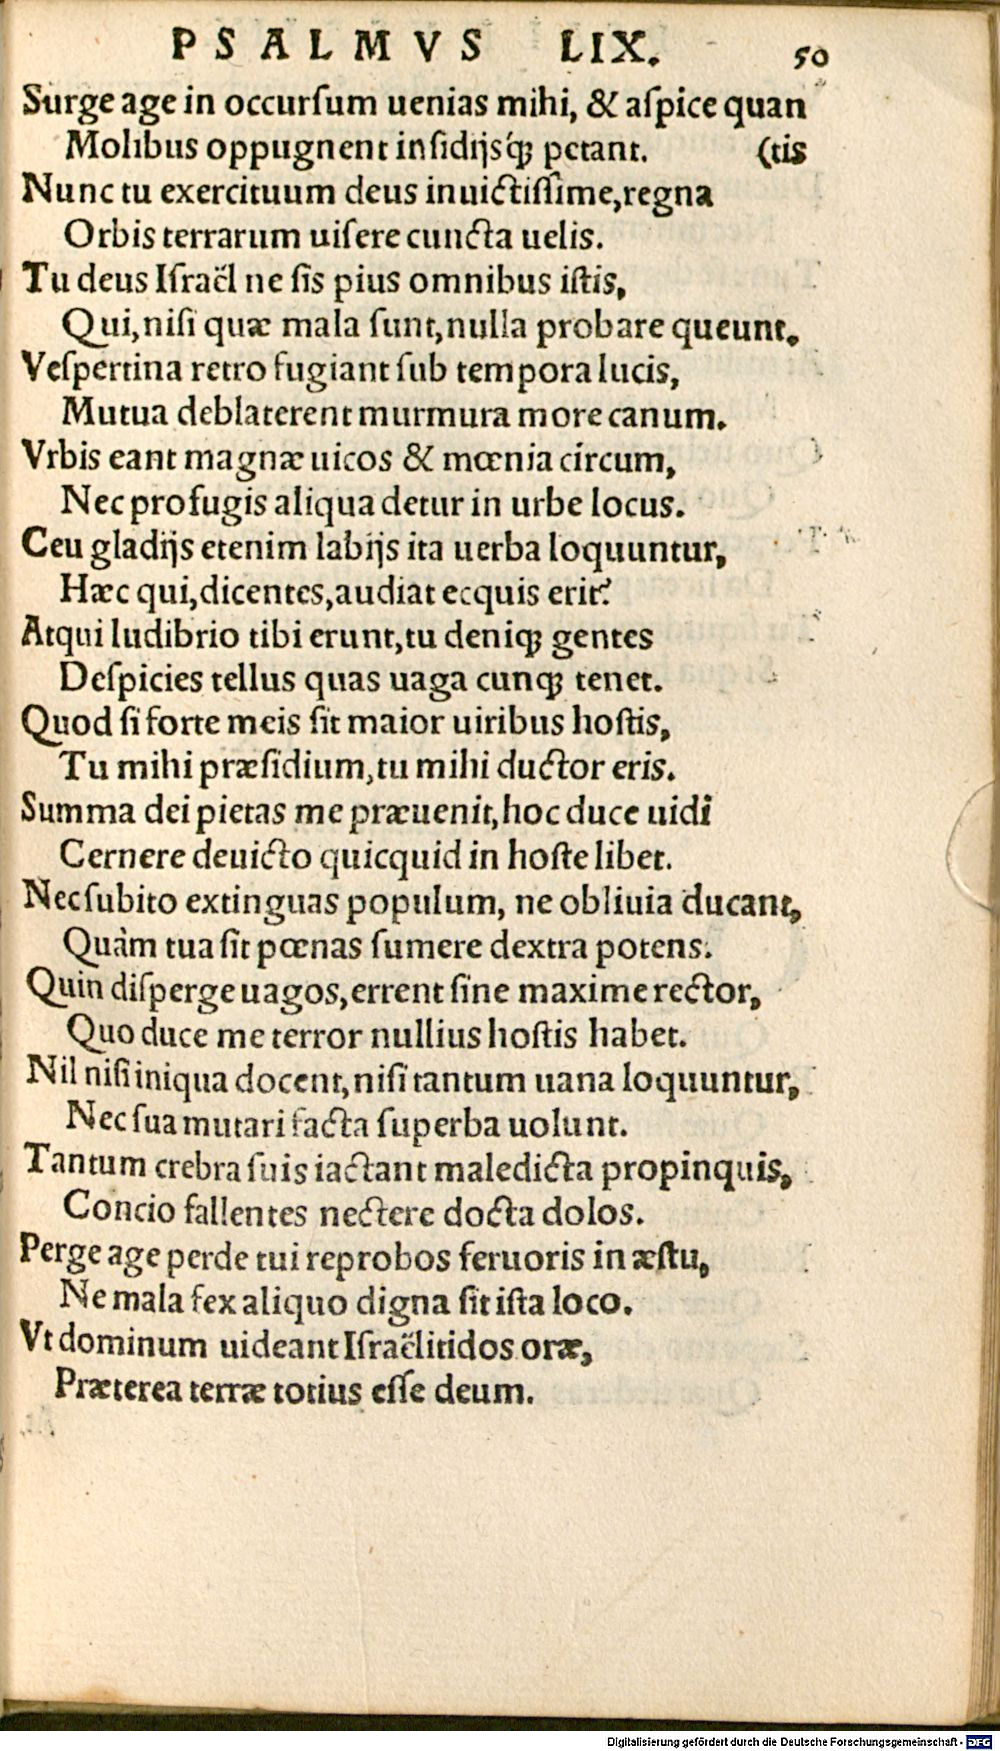 PSALMVS LIX. 50
Surge age in occurſum uenias mihi, & aſpice quan
Molibus oppugnent inſidijsq́ꝫ petant. (tis
Nunc tu exercituum deus inuictiſſime, regna
Orbis terrarum uiſere cuncta uelis.
Tu deus Iſraël ne ſis pius omnibus iſtis,
Qui, niſi quæ mala ſunt, nulla probare queunt.
Veſpertina retro fugiant ſub tempora lucis,
Mutua deblaterent murmura more canum.
Vrbis eant magnæ uicos & mœnia circum,
Nec profugis aliqua detur in urbe locus.
Ceu gladijs etenim labijs ita uerba loquuntur,
Hæc qui, dicentes, audiat ecquis erit?
Atqui ludibrio tibi erunt, tu deniqꝫ gentes
Deſpicies tellus quas uaga cunqꝫ tenet.
Quod ſi forte meis ſit maior uiribus hoſtis,
Tu mihi præſidium, tu mihi ductor eris.
Summa dei pietas me præuenit, hoc duce uidi
Cernere deuicto quicquid in hoſte libet.
Nec ſubito extinguas populum, ne obliuia ducant,
Quàm tua ſit pœnas ſumere dextra potens.
Quin diſperge uagos, errent ſine maxime rector,
Quo duce me terror nullius hoſtis habet.
Nil niſi iniqua docent, niſi tantum uana loquuntur,
Nec ſua mutari facta ſuperba uolunt.
Tantum crebra ſuis iactant maledicta propinquis,
Concio fallentes nectere docta dolos.
Perge age perde tui reprobos feruoris in æſtu,
Ne mala fex aliquo digna ſit iſta loco.
Vt dominum uideant Iſraëlitidos oræ,
Præterea terræ totius eſſe deum.
Digitalisierung gefördert durch die Deutsche Forschungsgemeinschaft - DFG